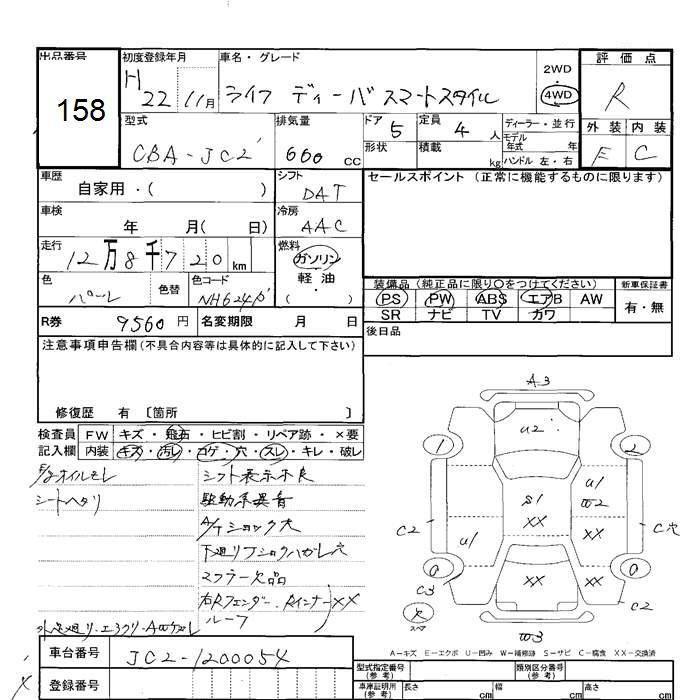 出品番号
158
初度登録年月
H 22 11月
車名・グレード
ライフ ディーバスマートスタイル
2WD
4WD
評価点
R
型式
CBA-JC2
排気量
660 cc
ドア 5
形状
定員 4 人
積載 kg
ディーラー・並行
モデル年式 年
ハンドル 左・右
外装 内装
E C
車歴
自家用・( )
シフト
DAT
セールスポイント (正常に機能するものに限ります)
車検
年 月( 日)
冷房
AAC
走行
12万8千720 km
燃料
ガソリン
軽油
( )
色
パール
色替
色コード
NH624P
装備品 (純正品に限り○をつけてください)
PS PW ABS エアB AW
SR ナビ TV カワ
新車保証書
有・無
R券 9560円 名変期限 月 日
後日品
注意事項申告欄(不具合内容等は具体的に記入して下さい)
修復歴 有 〔箇所 〕
検査員記入欄
FW キズ・飛石・ヒビ割・リペア跡・×要
内装 キズ・汚レ・コゲ・穴・スレ・キレ・破レ
シフト表示不良
シートヘタリ
駆動系異音
A/Tショック大
マフラー欠品
右Rフェンダー・RインナーXX
ルーフ
車台番号 JC2-1200054
登録番号
A3
U2
1
2
U1
W2
S1
XX
XX
C2
U1
C穴
XX
XX
C3
C2
スペア
W3
A-キズ E-エクボ U-凹み W-補修跡 S-サビ C-腐食 XX-交換済
型式指定番号(参考)
類別区分番号(参考)
車庫証明用(参考) 長さ cm 幅 cm 高さ cm